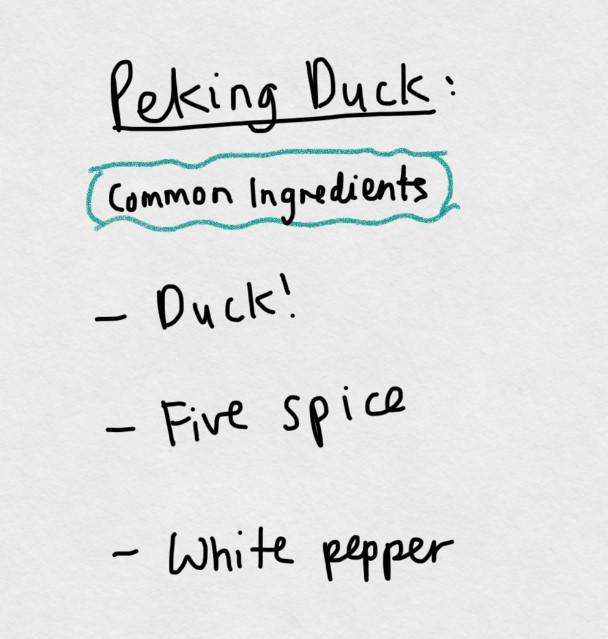 Peking Duck:
Common Ingredients
- Duck!
- Five spice
- White pepper